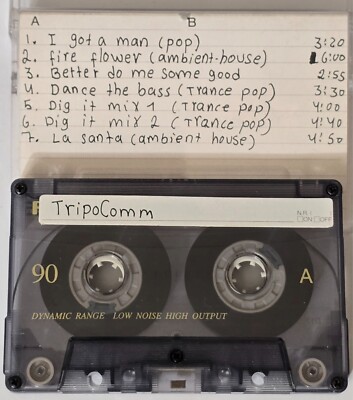 A B
1. I got a man (pop) 3:20
2. fire flower (ambient-house) 6:00
3. Better do me some good 2:55
4. Dance the bass (Trance pop) 3:30
5. Dig it mix 1 (Trance pop) 4:00
6. Dig it mix 2 (Trance pop) 4:40
7. La santa (ambient house) 4:50
TripoComm
N.R.:
□ON □OFF
90 A
DYNAMIC RANGE LOW NOISE HIGH OUTPUT